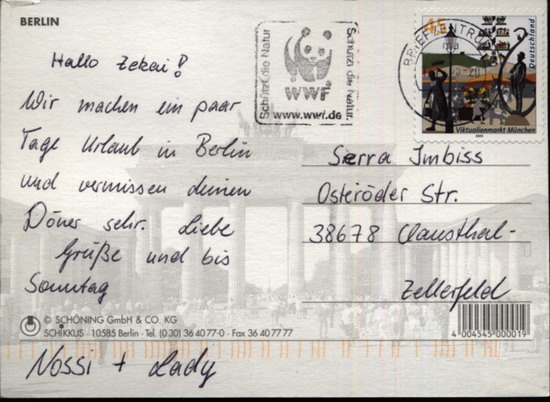 BERLIN
Hallo Zekai!
Wir machen ein paar
Tage Urlaub in Berlin
und vermissen deinen
Döner sehr. Liebe
Grüße und bis
Sonntag
Nossi + Lady
Schützt die Natur
WWF
Schützt die Natur.
www.wwf.de
BRIEFZENTRUM
45
Deutschland
Viktualienmarkt München
Sierra Imbiss
Osteröder Str.
38678 Clausthal-
Zellerfeld
© SCHÖNING GmbH & CO. KG
SCHIKKUS · 10585 Berlin · Tel. (0 30) 36 40 77-0 · Fax 36 40 77 77
4 004545 000019